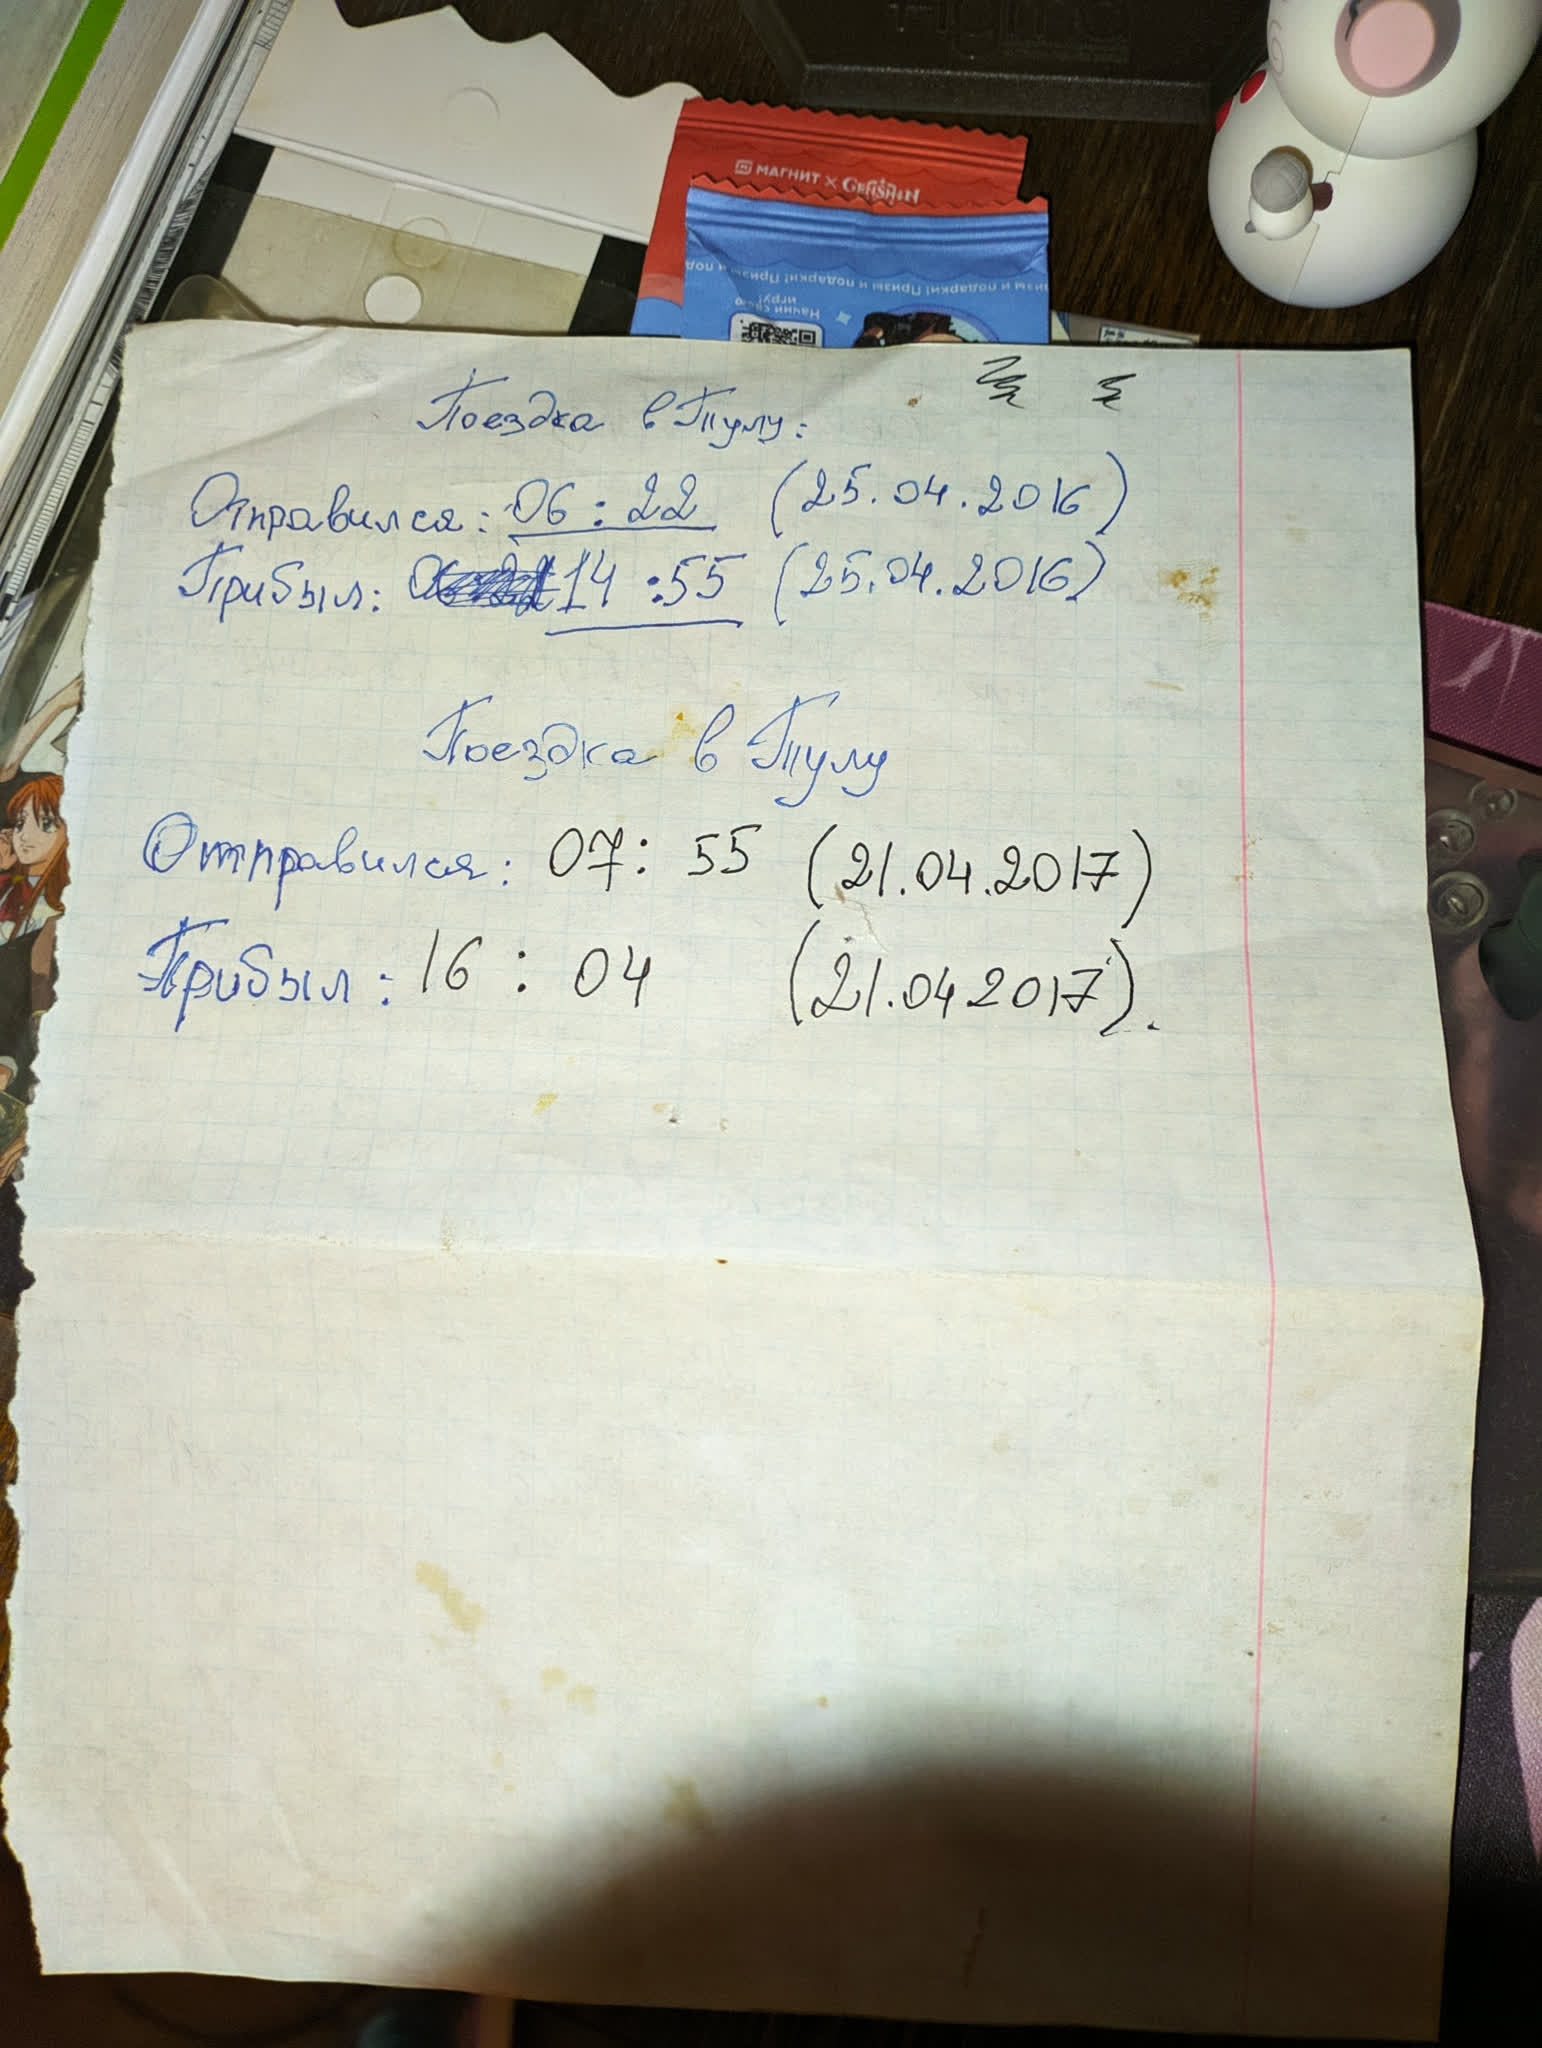 МАГНИТ × GENSHIN
Призы и подарки! Призы и подарки!
Начни свою
игру!
Поездка в Тулу:
Отправился: 06:22 (25.04.2016)
Прибыл: 14:55 (25.04.2016)
Поездка в Тулу
Отправился: 07:55 (21.04.2017)
Прибыл: 16:04 (21.04 2017).